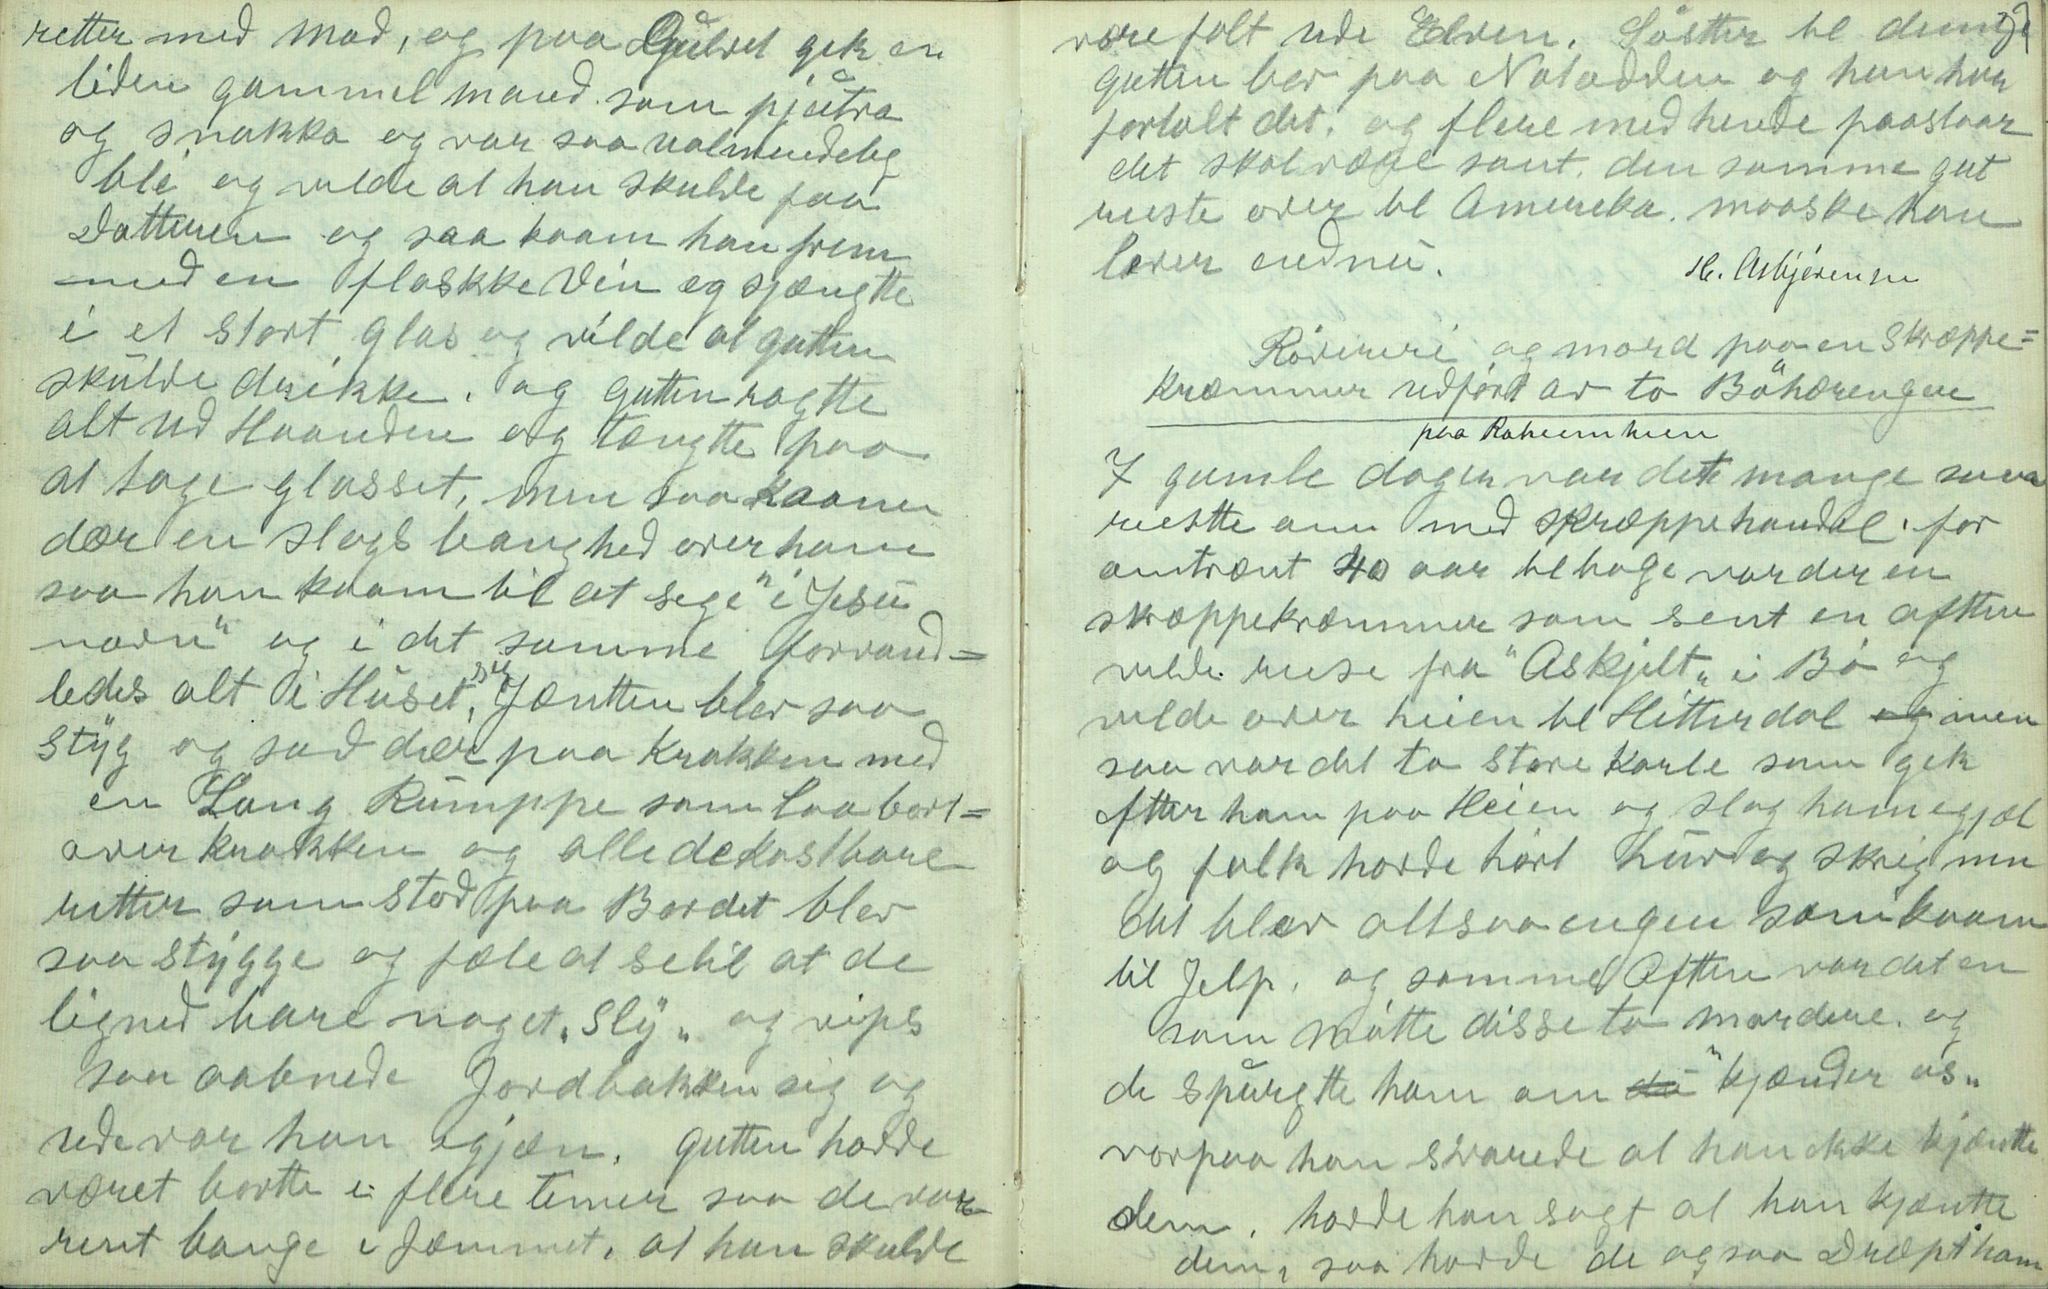 retter med mad, og paa Gulvet gek en
liden gammel mand som pjutra
og snakka og var saa ualmindelig
bli og vilde at han skulde faa
Datteren og saa kaam han frem
med en flaskke Vin og sjængtte
i et stort glas og vilde at gutten
skulde drikke. og gutten ragtte
alt ud Haanden og tængtte paa
at tage glasset, men saa kaamer
dær en slags banghed over ham
saa han kaam til at sege "i Jesu
navn" og i det samme forvand=
ledes alt i Huset, Jæntten blev saa
styg og sad dær paa krakken med
en Lang Rumppe som laa bort=
over krakken og alle de kostbare
retter som stod paa Bordet blev
saa stygge og fæle at se til at de
ligned bare noget "Sly" og vips
saa aabnede Jordbakken sig og
ude var han igjæn. gutten hadde
været bortte i flere timer saa de var
rent bange i Jæmmet, at han skulde
være falt udi Elven. Søstter til denne
gutten bor paa Notodden og hun har
fortalt det, og flere med hende paastaar
det skal være sant. den samme gut
reiste over til Amerika. maaske han
lever endnu.
H. Asbjörensen
Röveri og mord paa en Skræppe=
kræmmer udført av to Böhæringer
paa
I gamle dager var det mange som
reistte om med skræppehandel, for
omtrænt 40 aar tilbage var der en
skræppekræmmer som sent en aftten
vilde reise fra "Askjelt" i Bö og
vilde over heien til Hitterdal og men
saa var det to store karle som gek
eftter ham paa Heien og slog ham igjæl
og falk hadde hört Lur og skrig men
det blev altsaa ingen som kaam
til Jelp. og samme Aftten var det en
som mötte disse to mordere. og
de spurgtte ham om du "kjænder os"
vorpaa han svarede at han ikke kjæntte
dem. hadde han sagt at han kjæntte
dem, saa hadde de ogsaa Dræpt ham